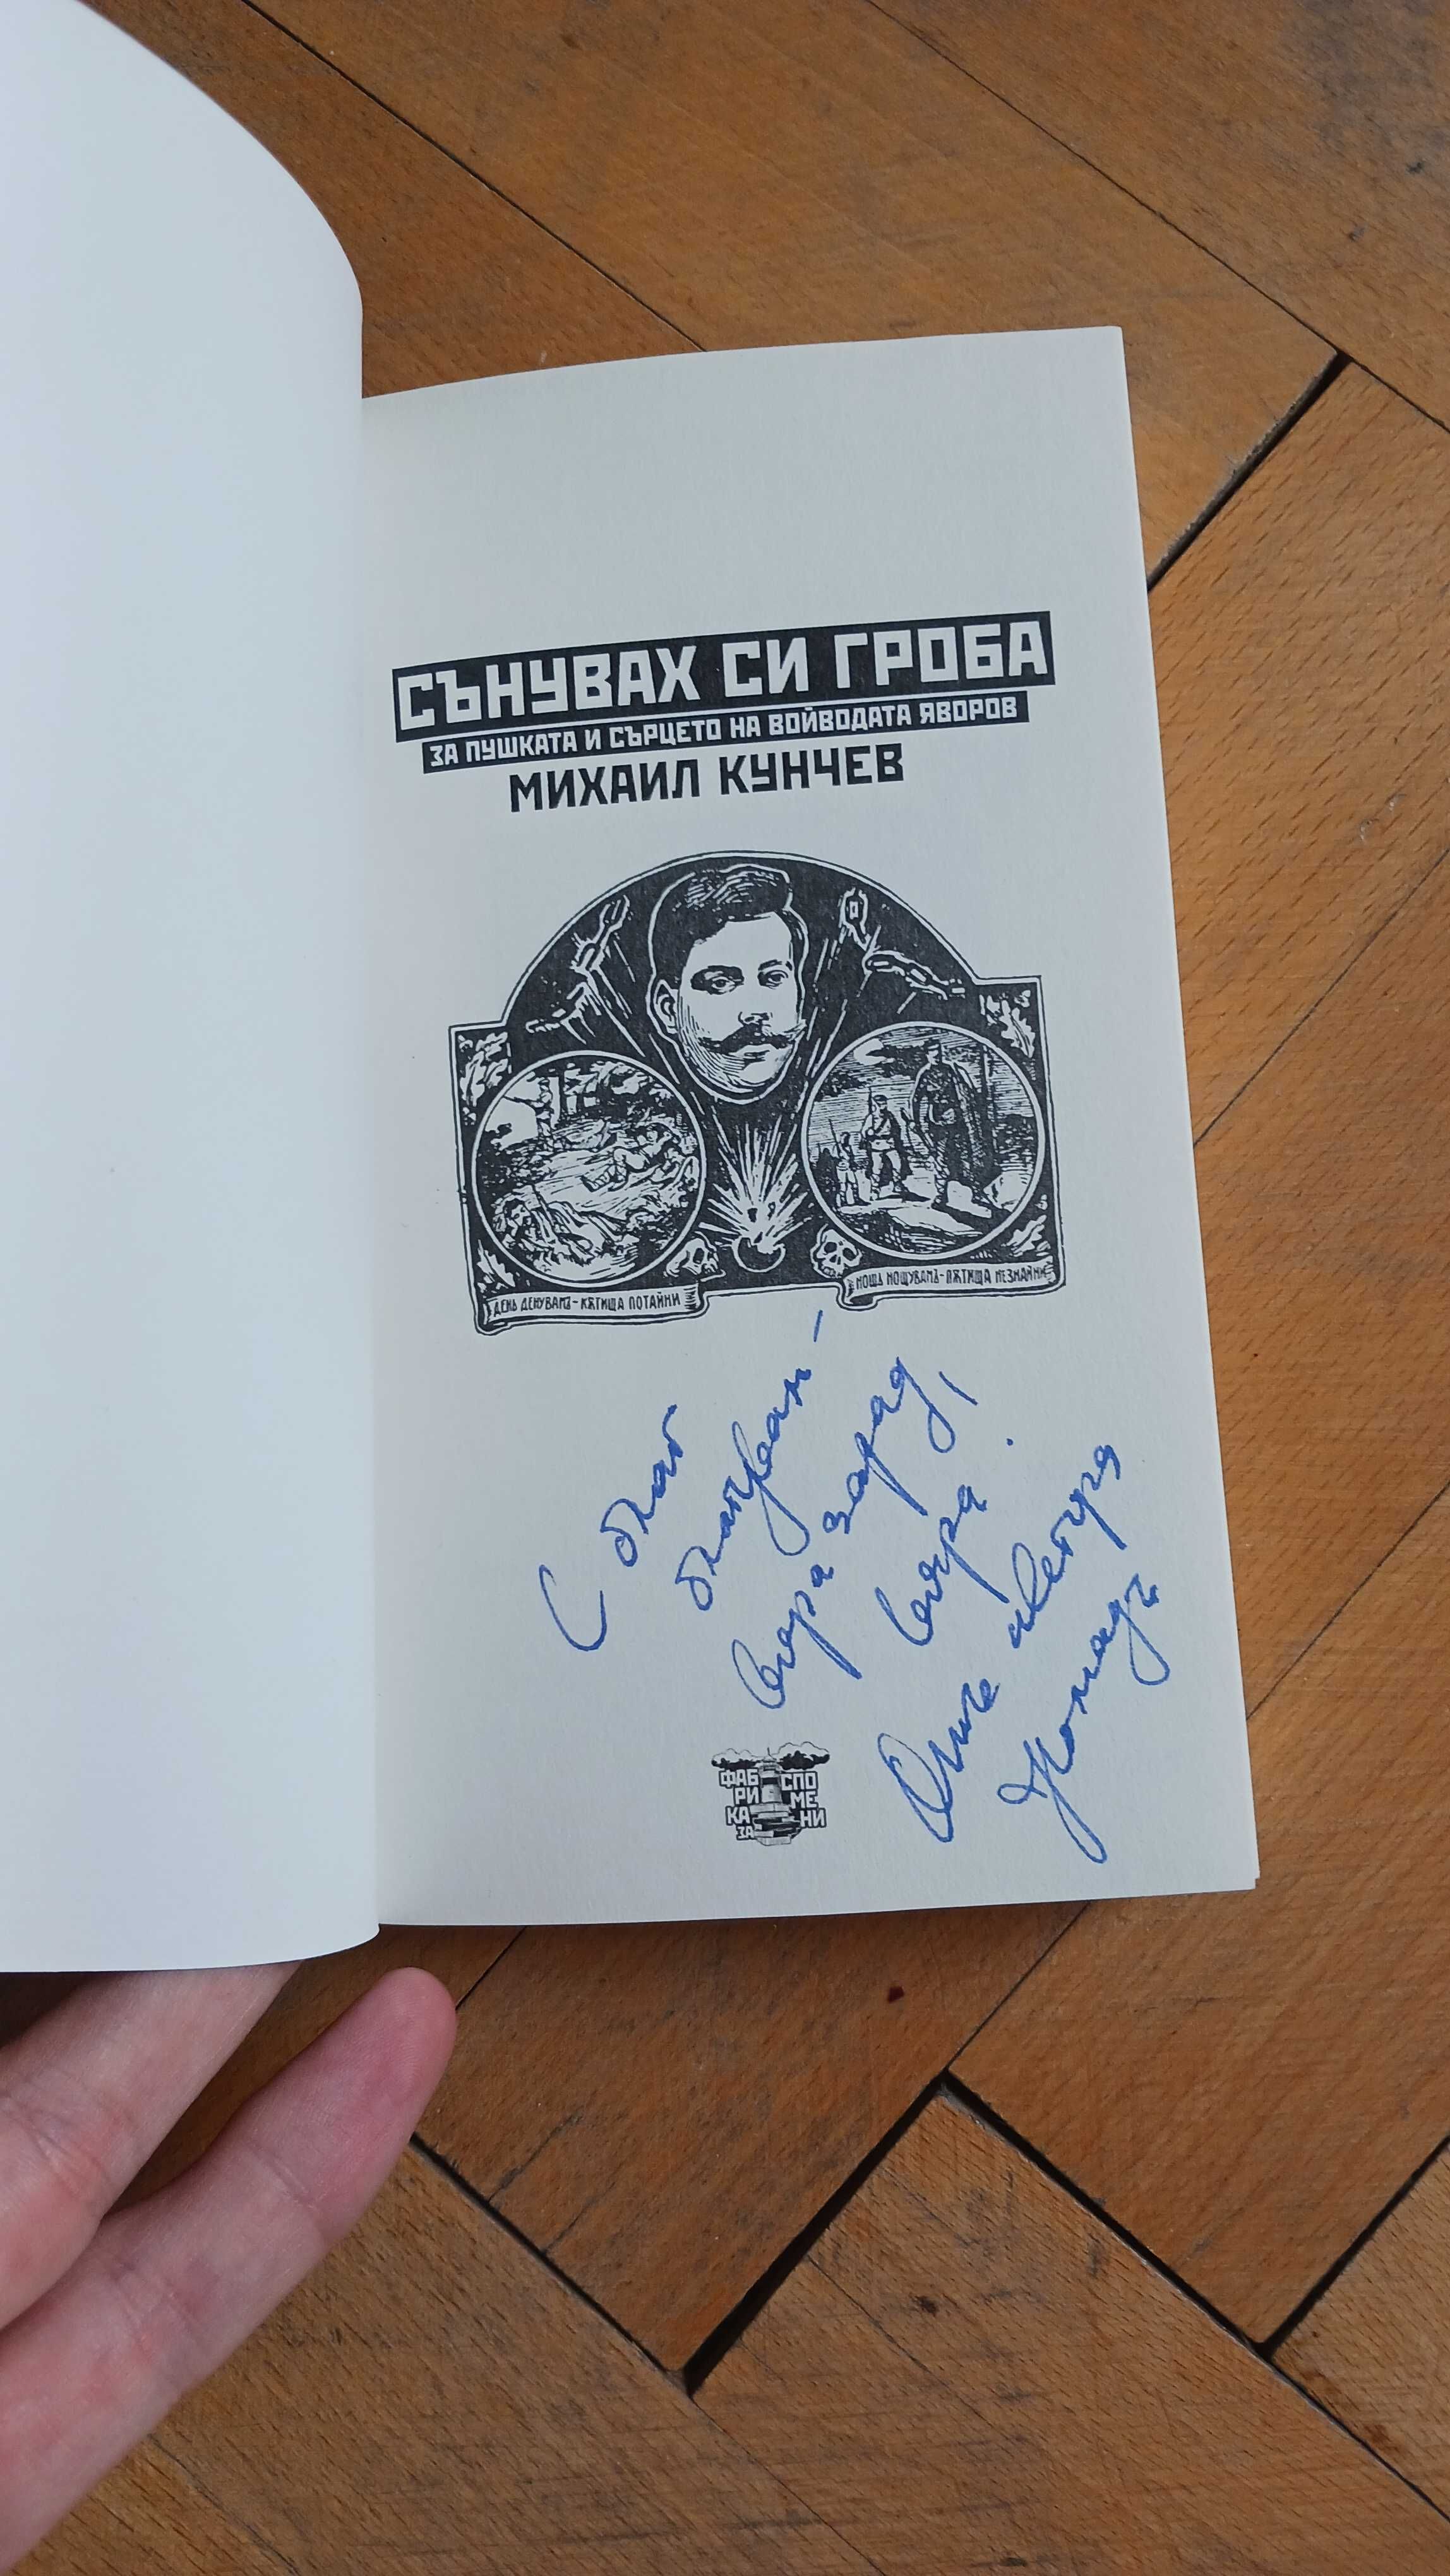 СЪНУВАХ СИ ГРОБА
ЗА ПУШКАТА И СЪРЦЕТО НА ВОЙВОДАТА ЯВОРОВ
МИХАИЛ КУНЧЕВ
ДЕНЬ ДЕНУВАМЪ - КѪТИЩА ПОТАЙНИ
НОЩЬ НОЩУВАМЪ - ПѪТИЩА НЕЗНАЙНИ
С благ
вяра заради
вяра!
ФАБ СПО
РИ МЕ
КА НИ
ЗА